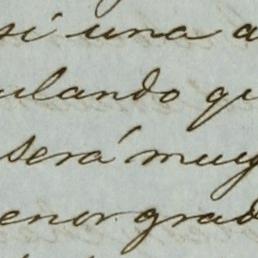 si una a
ulando qu
será muy
enor grad